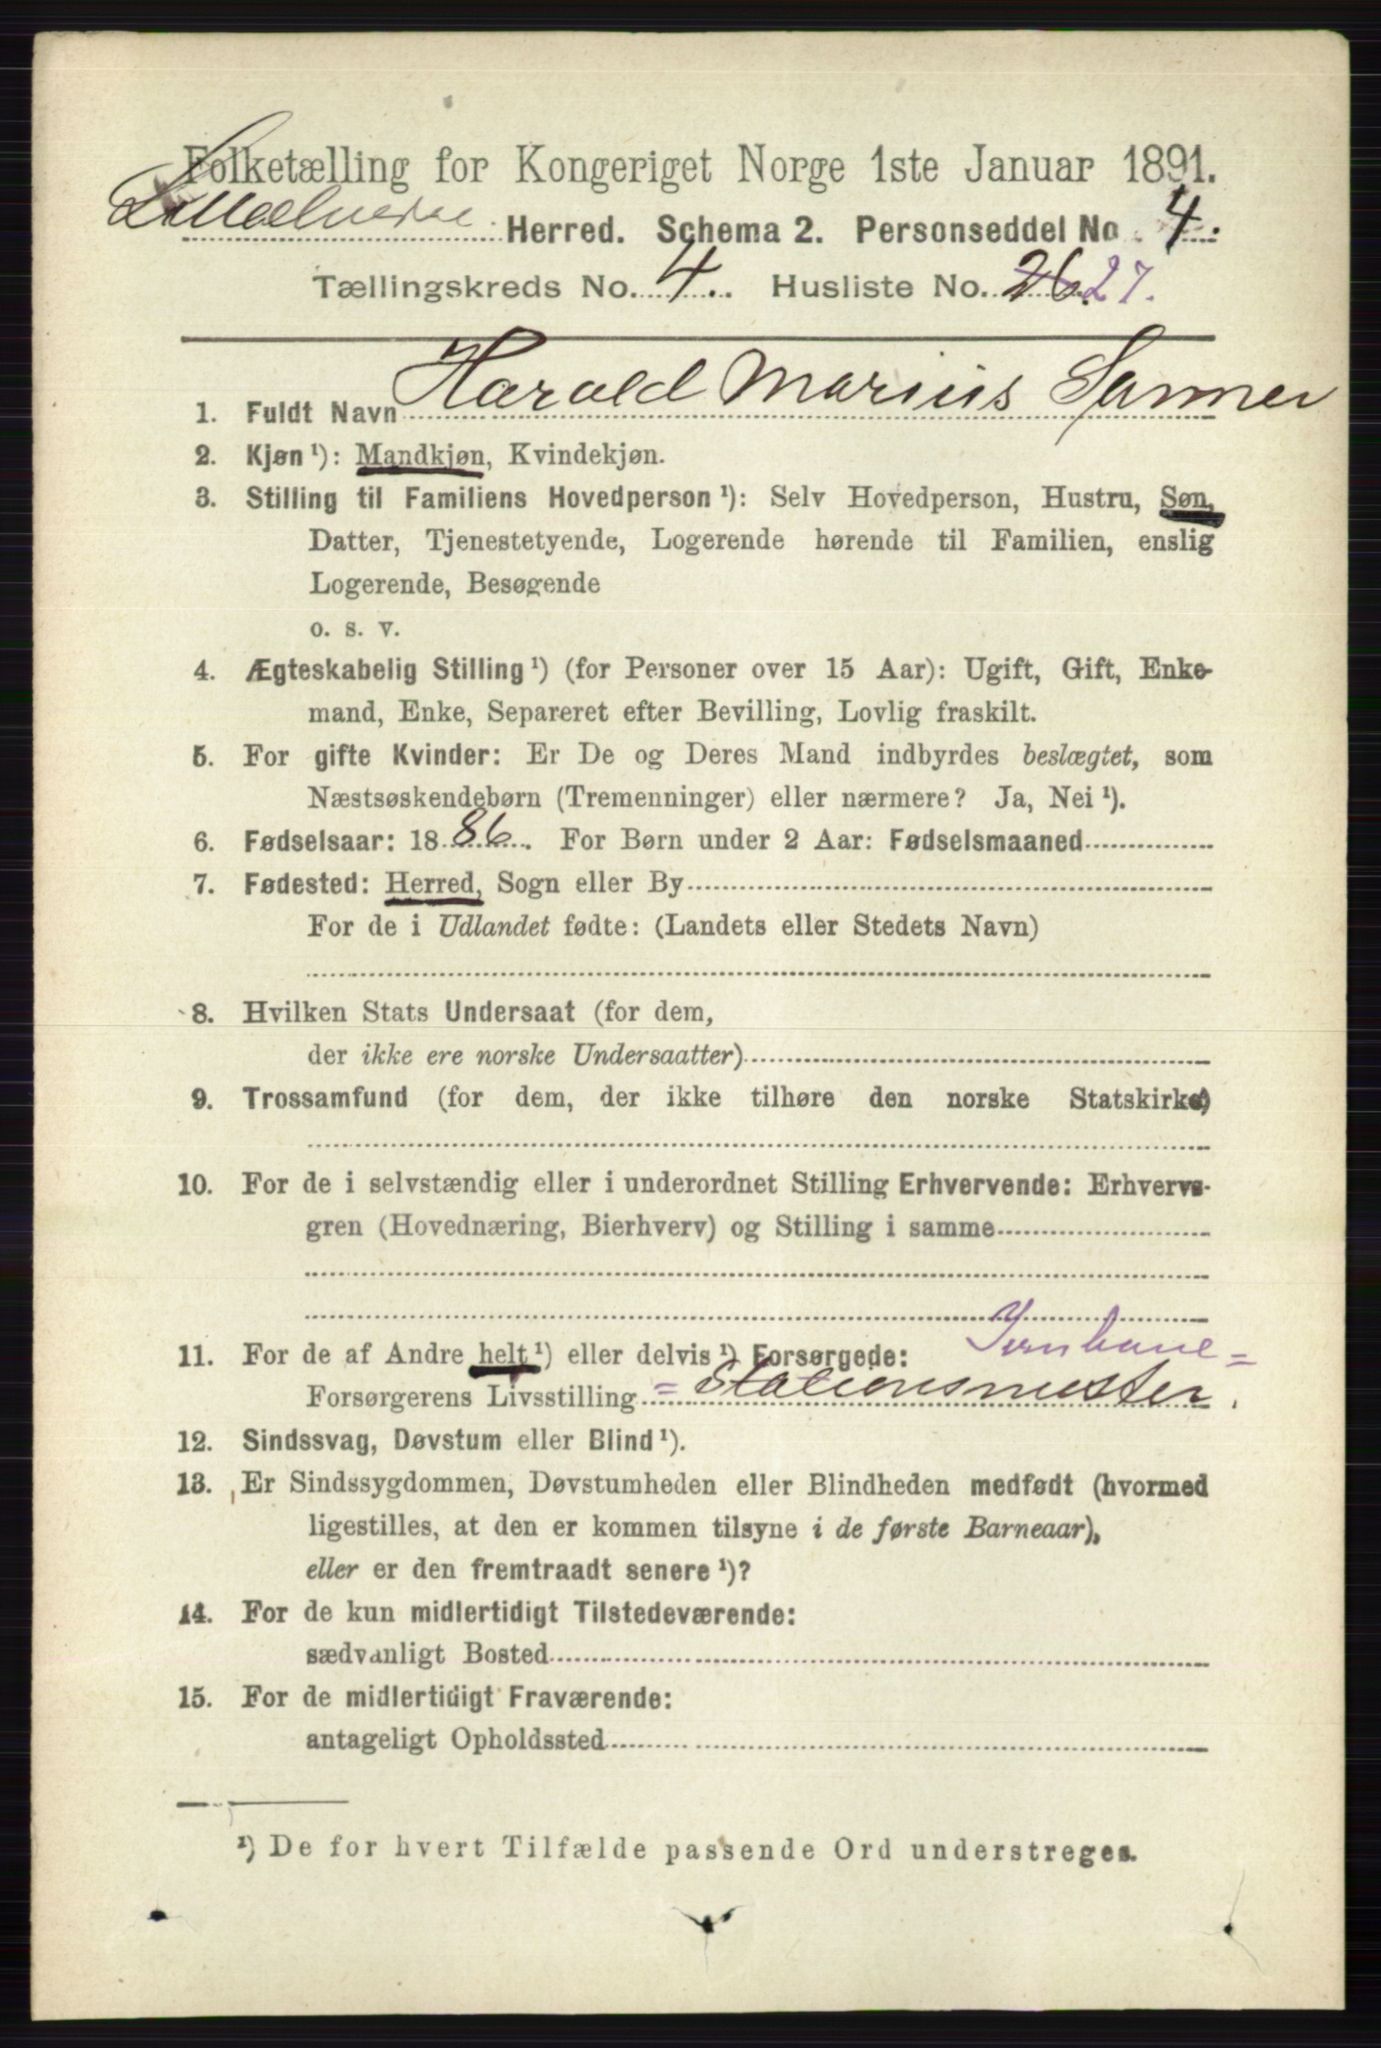 Folketælling for Kongeriget Norge 1ste Januar 1891.
Herred. Schema 2. Personseddel No. 4.
Tællingskreds No. 4. Husliste No. 26. 27.
1. Fuldt Navn Harald Marius Sanner
2. Kjøn ¹): Mandkjøn, Kvindekjøn.
3. Stilling til Familiens Hovedperson ¹): Selv Hovedperson, Hustru, Søn,
Datter, Tjenestetyende, Logerende hørende til Familien, enslig
Logerende, Besøgende
o. s. v.
4. Ægteskabelig Stilling ¹) (for Personer over 15 Aar): Ugift, Gift, Enke-
mand, Enke, Separeret efter Bevilling, Lovlig fraskilt.
5. For gifte Kvinder: Er De og Deres Mand indbyrdes beslægtet, som
Næstsøskendebørn (Tremenninger) eller nærmere? Ja, Nei ¹).
6. Fødselsaar: 1886. For Børn under 2 Aar: Fødselsmaaned
7. Fødested: Herred, Sogn eller By
For de i Udlandet fødte: (Landets eller Stedets Navn)
8. Hvilken Stats Undersaat (for dem,
der ikke ere norske Undersaatter)
9. Trossamfund (for dem, der ikke tilhøre den norske Statskirke)
10. For de i selvstændig eller i underordnet Stilling Erhvervende: Erhvervs-
gren (Hovednæring, Bierhverv) og Stilling i samme
11. For de af Andre helt ¹) eller delvis ¹) Forsørgede: Jernbane=
Forsørgerens Livsstilling =Stationsmester.
12. Sindssvag, Døvstum eller Blind ¹).
13. Er Sindssygdommen, Døvstumheden eller Blindheden medfødt (hvormed
ligestilles, at den er kommen tilsyne i de første Barneaar),
eller er den fremtraadt senere ¹)?
14. For de kun midlertidigt Tilstedeværende:
sædvanligt Bosted
15. For de midlertidigt Fraværende:
antageligt Opholdssted
¹) De for hvert Tilfælde passende Ord understreges.